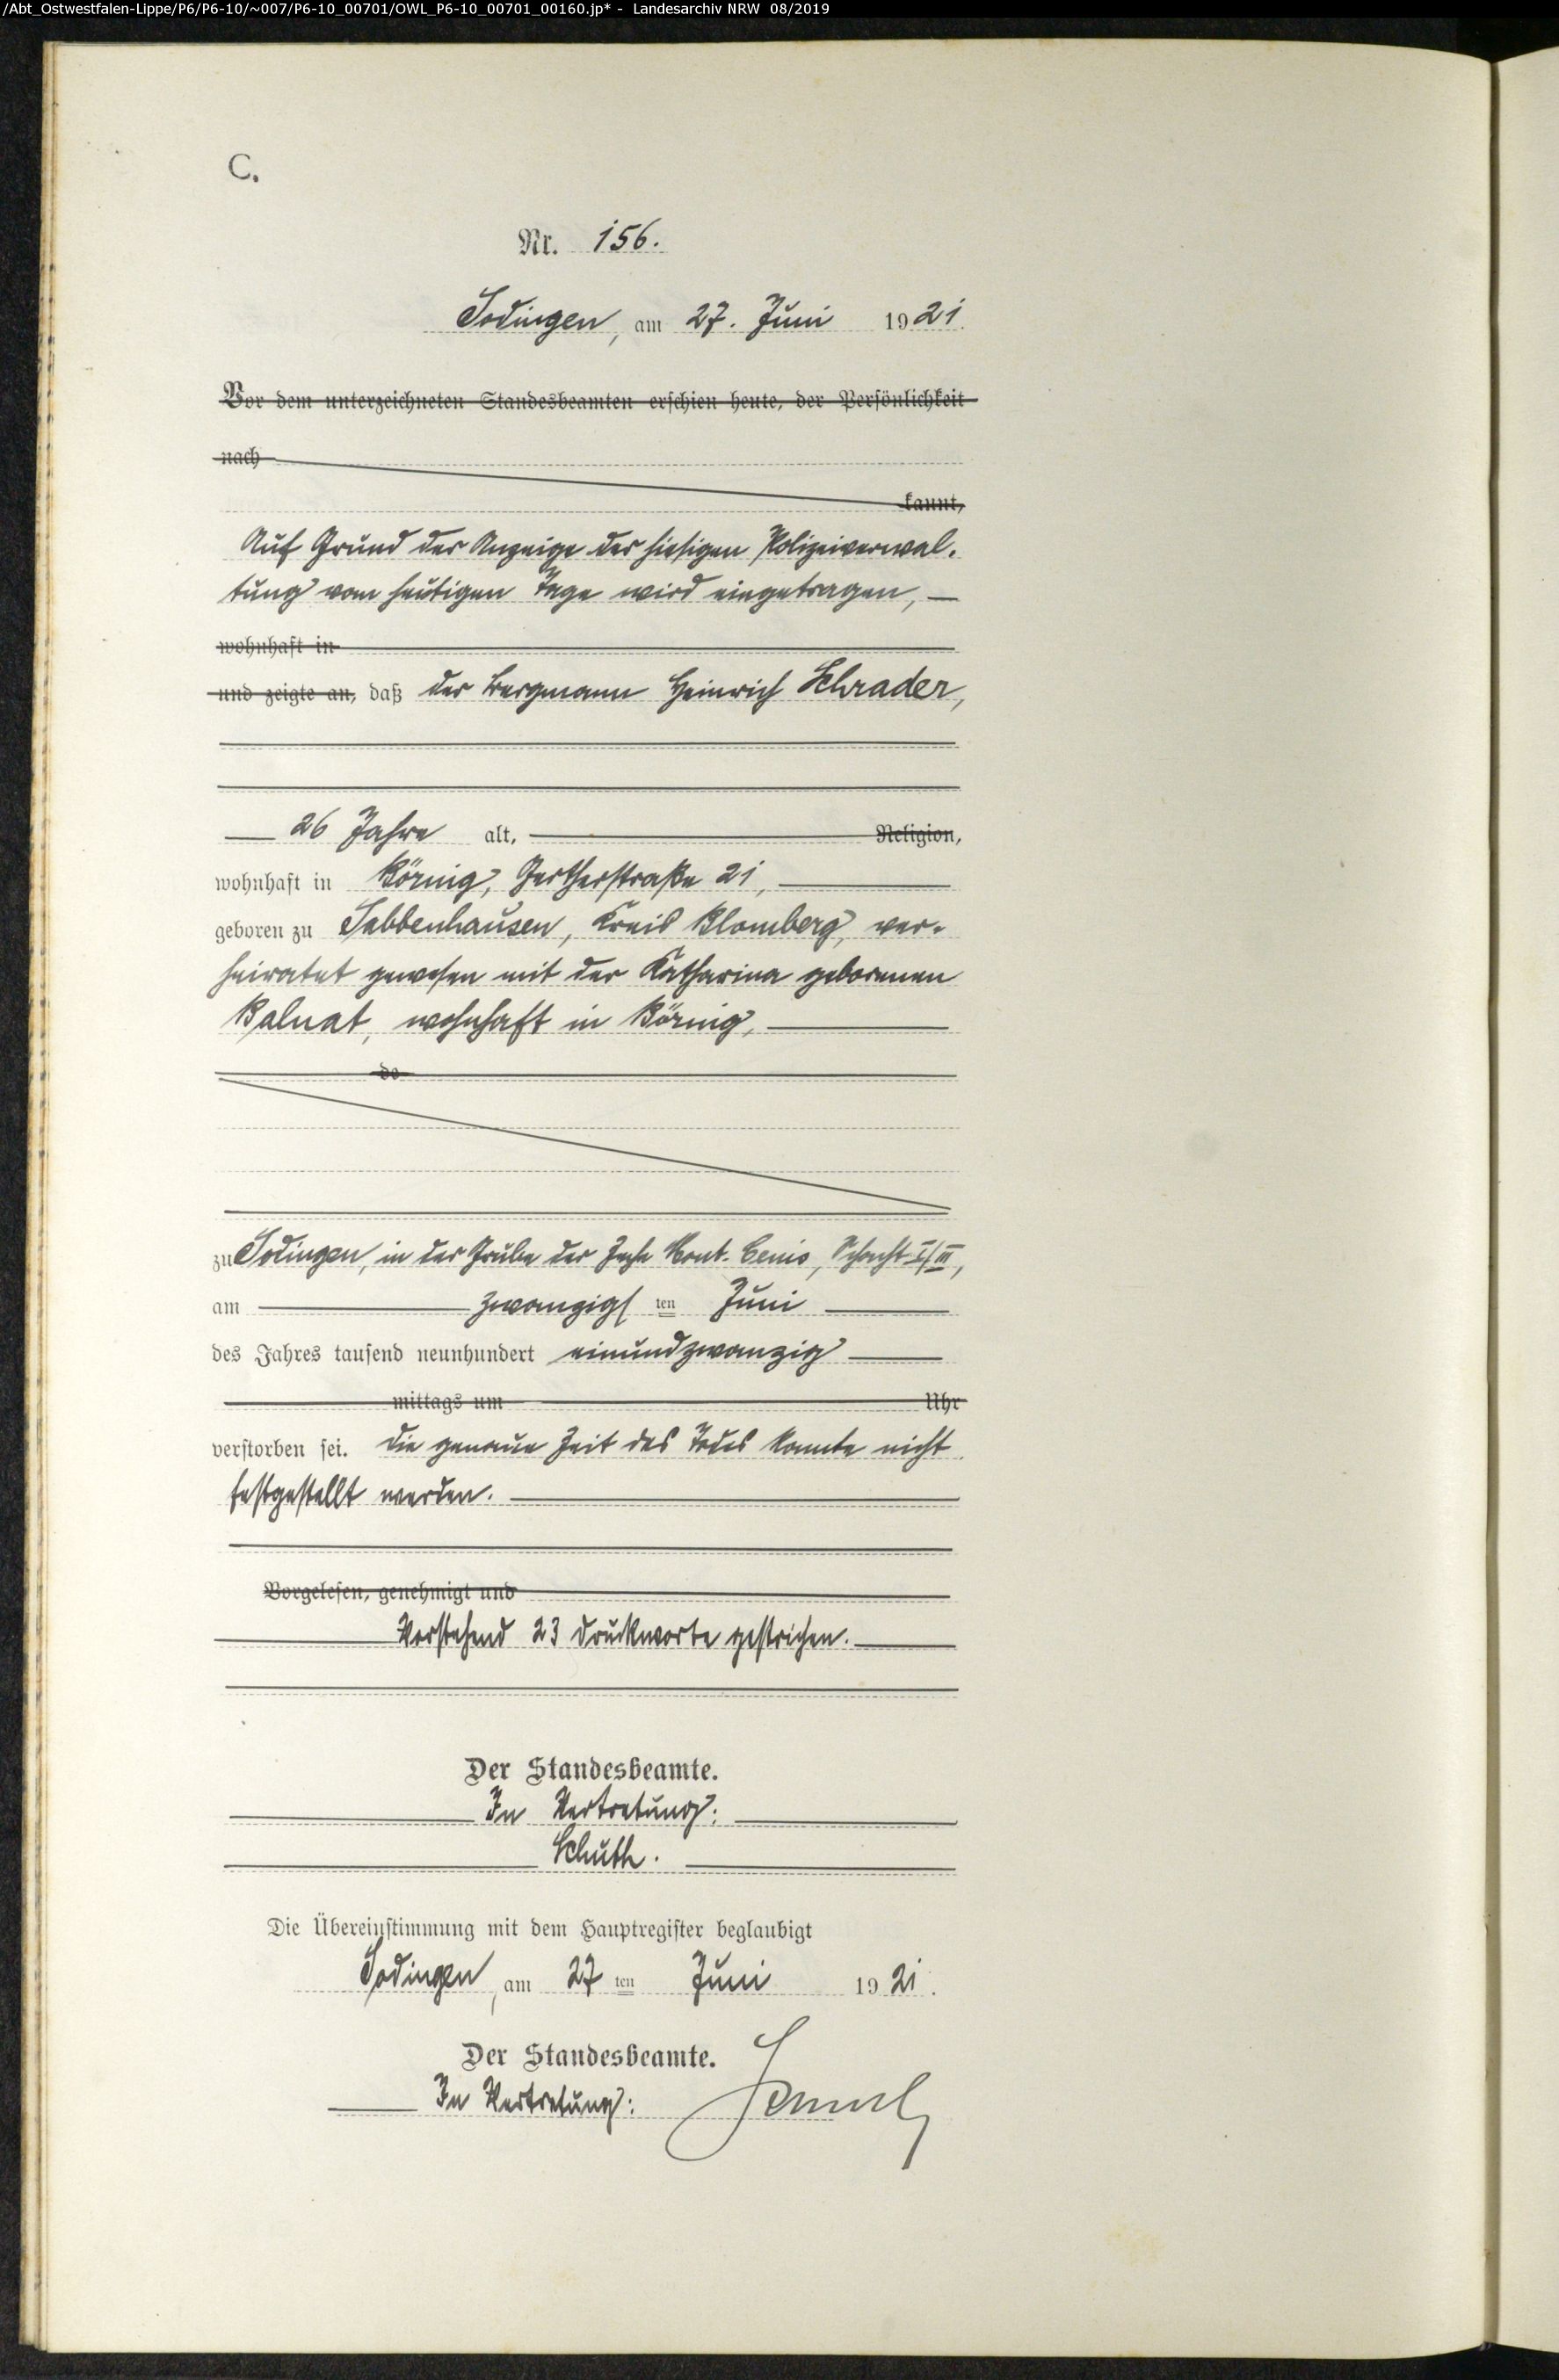 /Abt_Ostwestfalen-Lippe/P6/P6-10/~007/P6-10_00701/OWL_P6-10_00701_00160.jp* - Landesarchiv NRW 08/2019
C.
Nr. 156.
Sodingen, am 27. Juni 1921.
Vor dem unterzeichneten Standesbeamten erschien heute, der Persönlichkeit
nach
kannt,
Auf Grund der Anzeige der hiesigen Polizeiverwal-
tung vom heutigen Tage wird eingetragen,
wohnhaft in
und zeigte an, daß der Bergmann Heinrich Schrader,
26 Jahre alt, Religion,
wohnhaft in Börnig, Gertherstraße 21,
geboren zu Sabbenhausen, Kreis Blomberg, ver-
heiratet gewesen mit der Katharina geborenen
Balnat, wohnhaft in Börnig,
de
zu Sodingen, in der Grube der Zeche Mont-Cenis, Schacht I/III,
am zwanzigsten Juni
des Jahres tausend neunhundert einundzwanzig
mittags um Uhr
verstorben sei. Die genaue Zeit des Todes konnte nicht
festgestellt werden.
Vorgelesen, genehmigt und
Vorstehend 23 Druckworte gestrichen.
Der Standesbeamte.
In Vertretung:
Schuth.
Die Übereinstimmung mit dem Hauptregister beglaubigt
Sodingen, am 27 ten Juni 1921.
Der Standesbeamte.
In Vertretung: